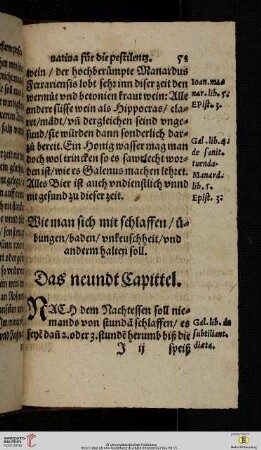 natiua für die pestilentz. 58
wein / der hochberümpte Manardus
Ferrariensis lobt sehr inn diser zeit den
wermůt vnd betonien kraut wein: Alle
andere süsse wein als Hippocras / cla-
ret / mädt / vñ dergleichen seind vnge-
sund / sie würden dann sonderlich dar-
zů bereit. Ein Honig wasser mag man
doch wol trincken so es sawrlecht wor-
den ist / wie es Galenus machen lehret.
Alles Bier ist auch vndienstlich vnnd
vngesund zu dieser zeit.
Ioan. ma-
nar. lib. 5.
Epist. 3.
Gal. lib. 4.
de sanit.
tuenda.
Manard.
lib. 5.
Epist. 3.
Wie man sich mit schlaffen / ü-
bungen / baden / vnkeuschheit / vnd
anderm halten soll.
Das neundt Capittel.
NACH dem Nachtessen soll nie-
mands von stundã schlaffen / es
seyẽ dañ 2. oder 3. stundẽ herumb biß die
I ij speiß
Gal. lib. de
subtiliant.
diæta.